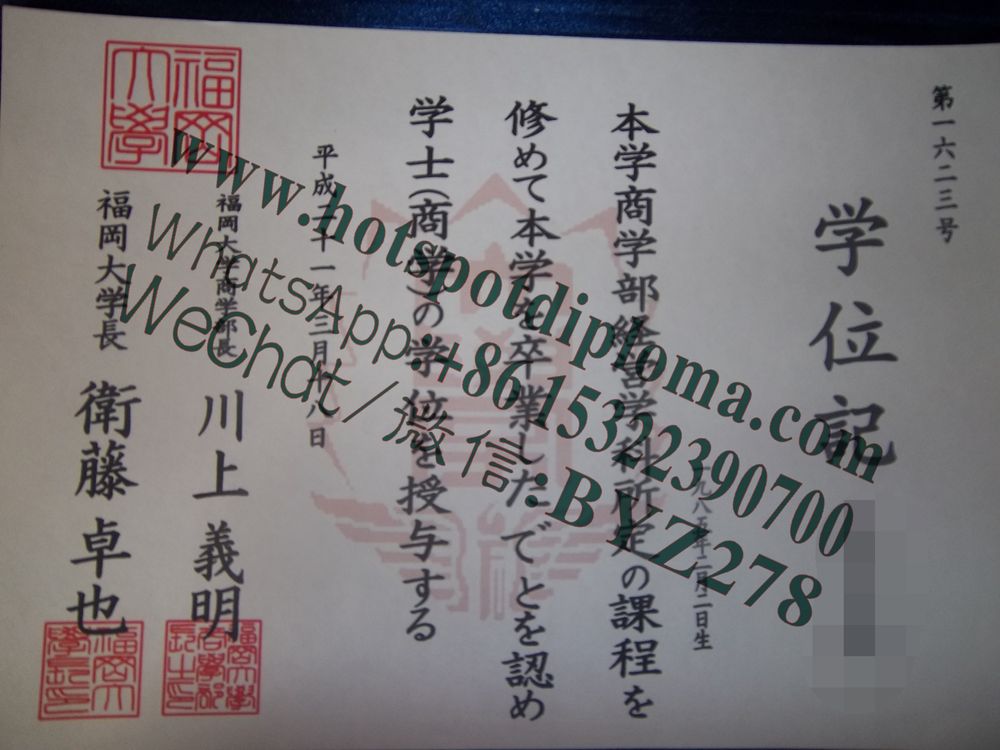 第一六二三号
学位記
一九八五年二月二日生
本学商学部経営学科所定の課程を
修めて本学を卒業したでとを認め
学士(商学)の学位を授与する
平成二十一年三月十八日
福岡大学商学部長 川上義明
福岡大学長 衛藤卓也
福岡大學
www.hotspotdiploma.com
WhatsApp:+86 15322390700
WeChat/微信:BYZ278